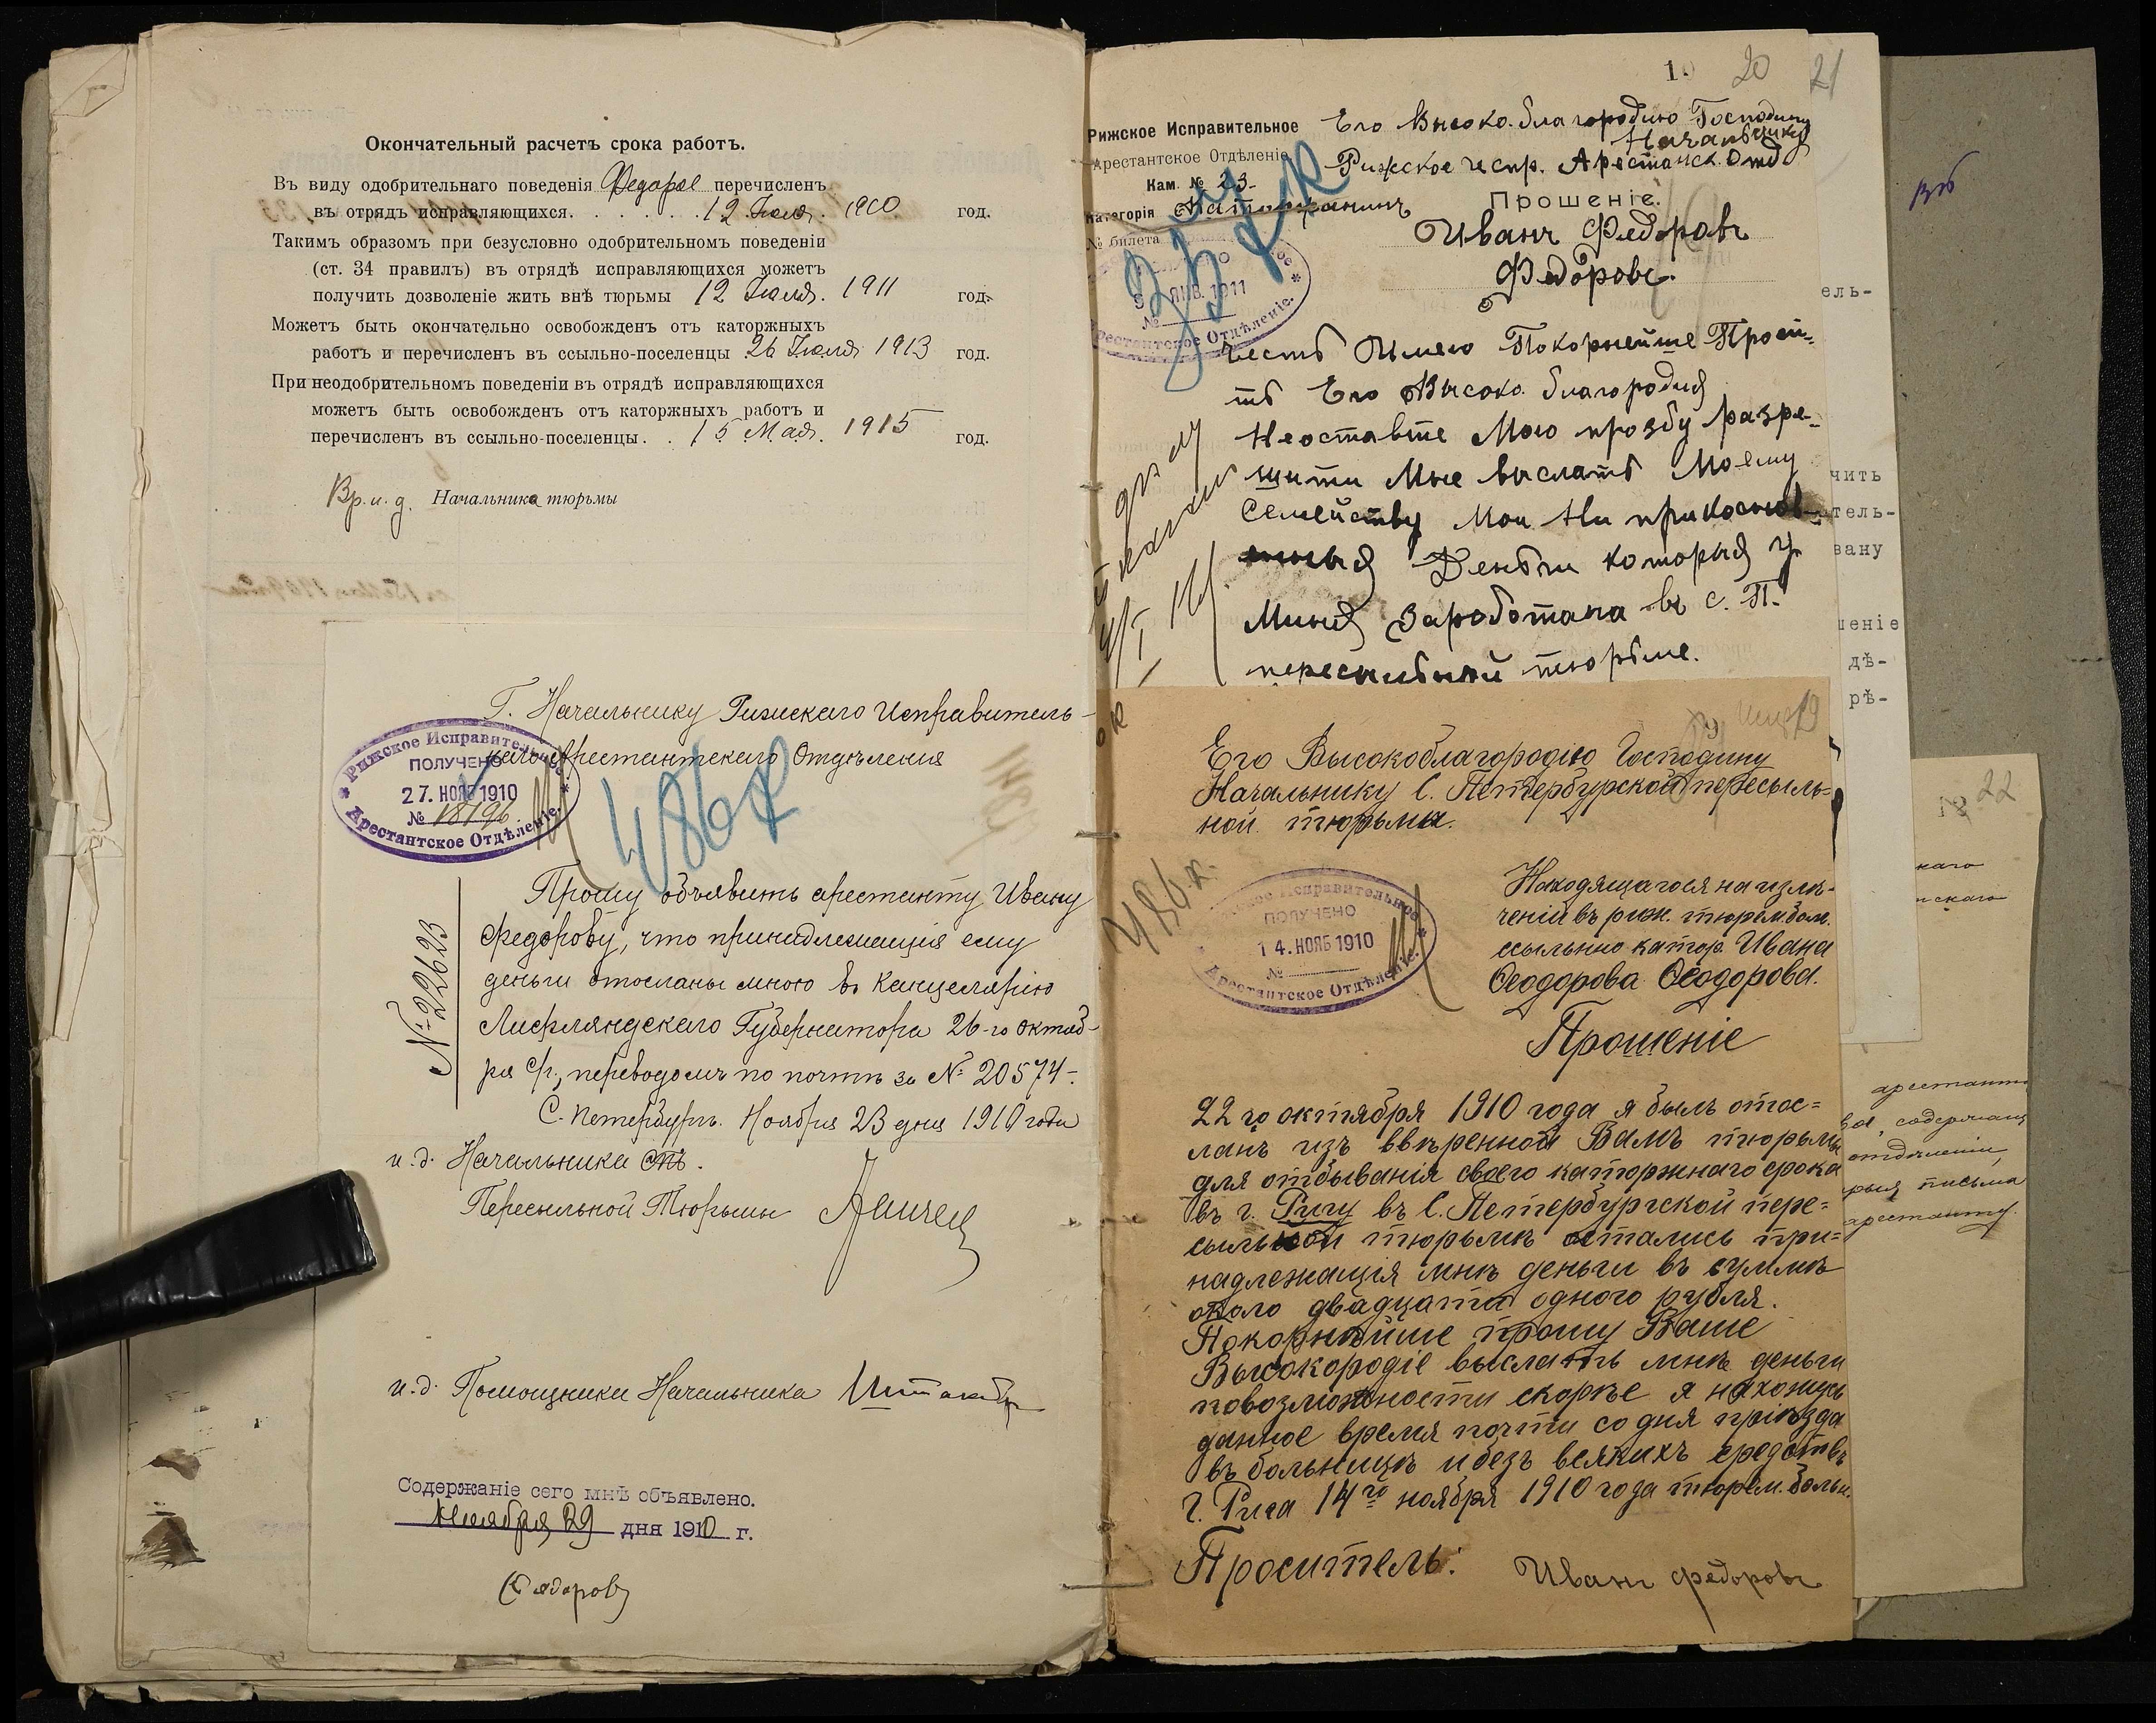 Окончательный расчетъ срока работъ.
Въ виду одобрительнаго поведенія Федоров перечисленъ
въ отрядъ исправляющихся. . . . . . . 12 Іюля. 1910 год.
Такимъ образомъ при безусловно одобрительномъ поведеніи
(ст. 34 правилъ) въ отрядѣ исправляющихся можетъ
получить дозволеніе жить внѣ тюрьмы 12 Іюля. 1911 год.
Можетъ быть окончательно освобожденъ отъ каторжныхъ
работъ и перечисленъ въ ссыльно-поселенцы 26 Іюля 1913 год.
При неодобрительномъ поведеніи въ отрядѣ исправляющихся
можетъ быть освобожденъ отъ каторжныхъ работъ и
перечисленъ въ ссыльно-поселенцы. . 15 Мая. 1915 год.
Вр. и. д. Начальника тюрьмы
Г. Начальнику Рижскаго Исправитель-
наго Арестантскаго Отдѣленія
Рижское Исправительное
ПОЛУЧЕНО
27. НОЯБ 1910
№ 18196
Арестантское Отдѣленіе.
486 к
№ 22623
Прошу объявить арестанту Ивану
Федорову, что принадлежащія ему
деньги отосланы мною въ Канцелярію
Лифляндскаго Губернатора 26-го октяб-
ря с/г., переводомъ по почтѣ за № 20574.
С. Петербургъ. Ноября 23 дня 1910 года
и.д. Начальника СПБ.
Пересыльной Тюрьмы
и.д. Помощника Начальника
Содержаніе сего мнѣ объявлено.
Ноября 29 дня 1910 г.
Федоровъ
20
21
Рижское Исправительное
Арестантское Отдѣленіе
Кам. № 23
Категорія Катаржанинъ
№ билета
ЯНВ. 1911
№
Арестантское Отдѣленіе.
Его Высоко.благородию Господину
Начальнику
Рижское испр. Арестанск. Отд
Прошеніе.
Иванъ Федоровъ
Федоровъ.
Честь Имею Покорнейше Проси-
ть Его Высоко. благородия
Неоставте Мою прозбу разре-
шити Мне выслать Моему
Семейству Мои Ни прикоснов-
Деньги которыя у
Миня Заработана въ с. П.
пересыльный тюрьме.
19
Его Высокоблагородію Господину
Начальнику С. Петербурской пересыль=
ной тюрьмы.
486 к.
ПОЛУЧЕНО
14. НОЯБ 1910
№
Арестантское Отдѣленіе.
Находящагося на излѣ-
ченіи въ риж. тюрем. бол.
ссыльно катор. Ивана
Ѳеодорова Ѳеодорова.
Прошеніе
22 го октября 1910 года я былъ отос=
ланъ изъ ввѣренной Вамъ тюрьмы
для отбыванія своего каторжнаго срока
въ г. Ригу въ С. Петербургской пере=
сыльной тюрьмѣ остались при=
надлежащія мнѣ деньги въ суммѣ
около двадцати одного рубля.
Покорнѣйше прошу Ваше
Высокородіе выслать мнѣ деньги
повозможности скорѣе я нахожусь
данное время почти со дня пріѣзда
въ больницѣ и безъ всякихъ средствъ
г. Рига 14го ноября 1910 года тюрем. больн.
Проситель: Иванъ Федоровъ
ель-
чить
тель-
вану
деніе
дѣ-
рѣ-
22
каго
арестант
ва, содержащ
отдѣленіи,
письма
арестанту.